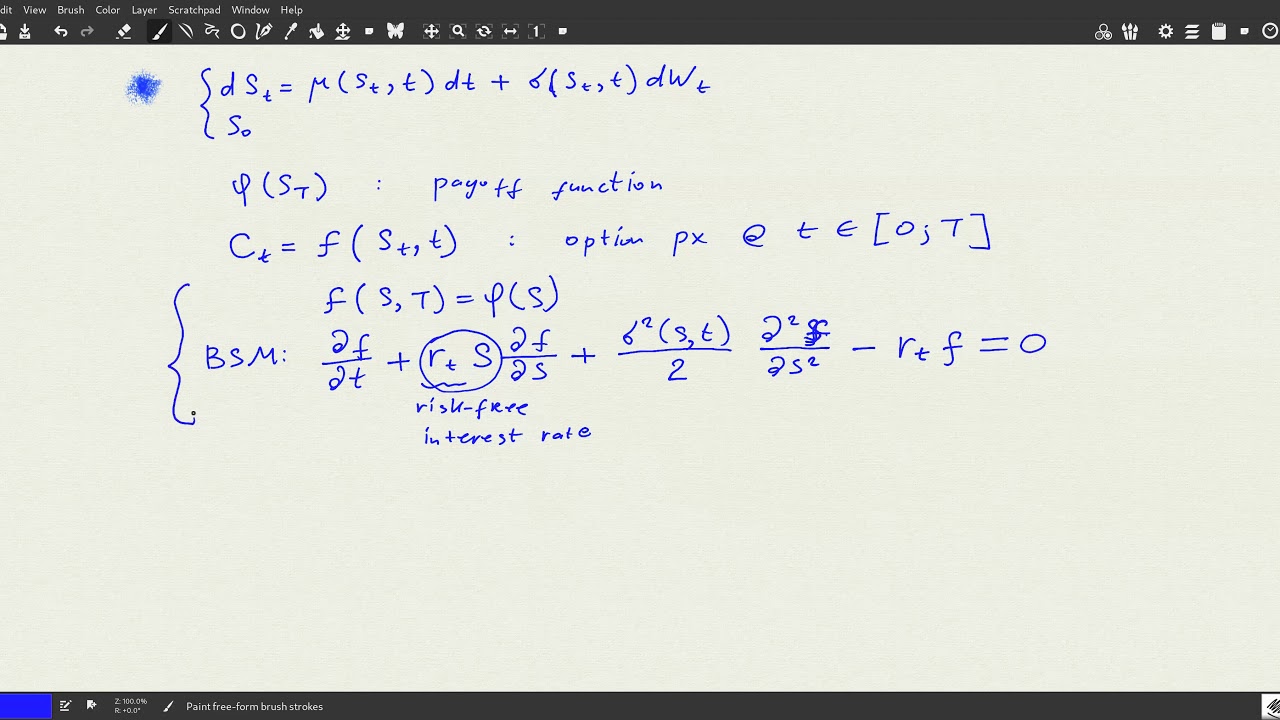 dit View Brush Color Layer Scratchpad Window Help
1
{ dS_t = μ(S_t, t) dt + σ(S_t, t) dW_t
{ S_0
φ(S_T) : payoff function
C_t = f(S_t, t) : option px @ t ∈ [0; T]
f(S, T) = φ(S)
BSM: ∂f/∂t + r_t S ∂f/∂s + σ²(s,t)/2 ∂²f/∂s² − r_t f = 0
risk-free
interest rate
Z: 100.0%
R: +0.0°
Paint free-form brush strokes